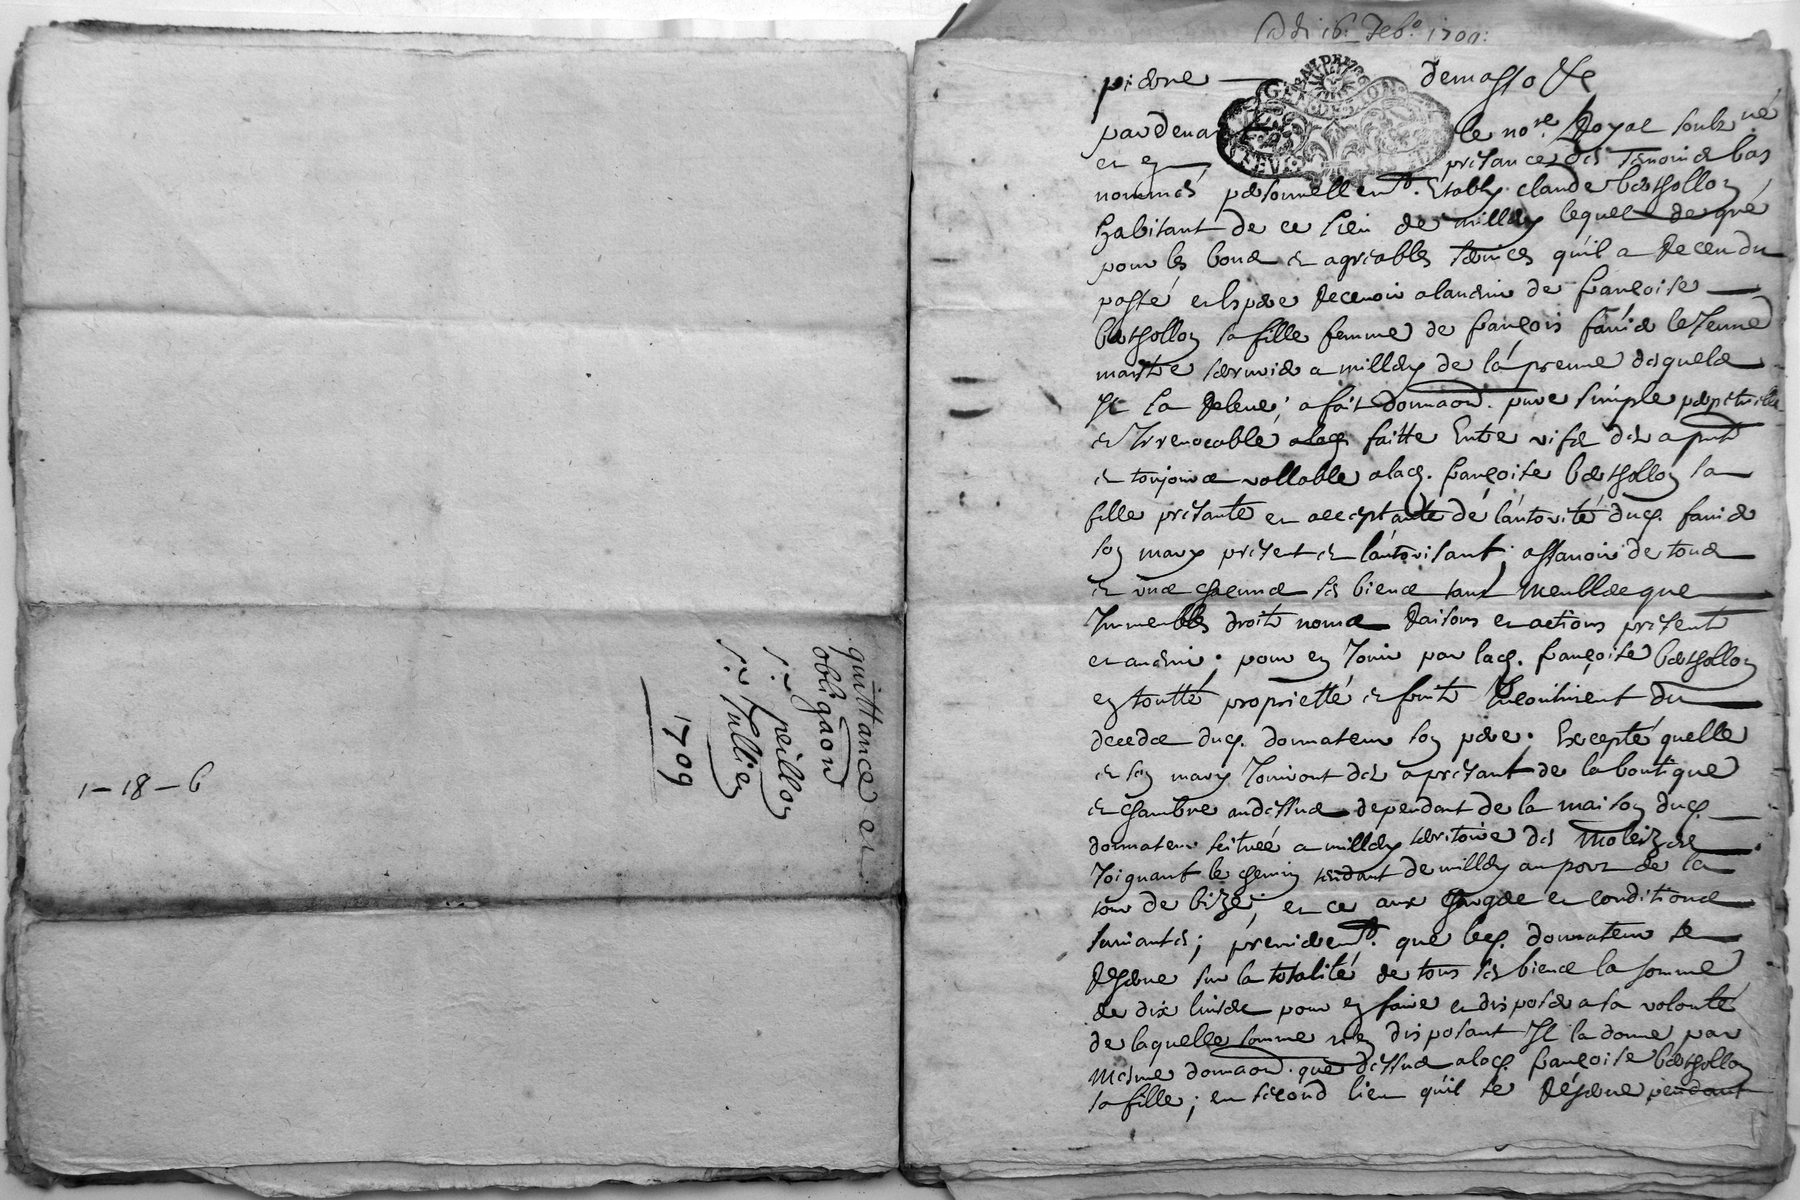 quittance et
obligaon
S.r peillon
S.r Jullien
1709
1 - 18 - 6
16. feb.o 1709:
pierre demasso &c
pardevant le nore. Royal soubz.né
et en presance des temoins bas
nommés personnellemt. Estably claude berthollon
habitant de ce lieu de millery lequel de gré
pour les bons et agreables services qu'il a Receu du
passé et espere Recevoir aladvenir de françoise
berthollon sa fille femme de françois favié le Jeune
maistre serrurier a millery de la preuve desquels
Il la Releve, a fait donnaon. pure simple perpetuelle
et Irrevocable faitte Entre vifs des a pnt
et toujours vallable alad. françoise berthollon sa
fille presante et acceptante de lautorité dud. favié
son mary present et lautorisant, assavoir de tous
et uns chacuns ses biens tant meubles que
Immeubles droits noms Raisons et actions presents
et advenir; pour en Jouir par lad. françoise berthollon
en toutte proprietté et fruits Incontinent du
deceds dud. donnateur son pere; Excepté quelle
et son mary Jouiront des a presant de la boutique
et chambre au dessus dependant de la maison dud.
donnateur scituée a millery territoire des
Joignant le chemin tendant de millery au port de la
tour de bize; et ce aux charges et conditions
suivantes; premieremt. que led. donnateur se
Reserve sur la totalité de tous ses biens la somme
de dix livres pour en faire et disposer a sa volonté
de laquelle somme n'en disposant Il la donne par
mesme donnaon. que dessus alad. françoise berthollon
sa fille; en second lieu qu'il se Reserve pendant